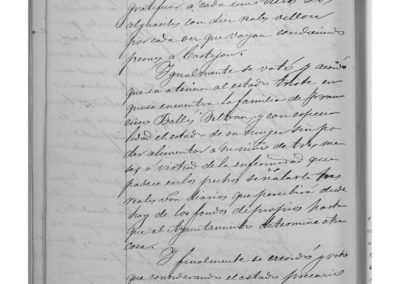 gratificar a cada uno
alguaciles con diez reales vellon
por cada vez que vayan conduciendo
presos a Castejon.
Igualmente se votó y acordó
que en atencion al estado triste en
que se encuentra la familia de Fran
cisco Ballés Beltran, y con especia
lidad el estado de su muger sin po
der alimentar a un niño de tres me
ses a virtud de la enfermedad que
padece en los pechos, señalarle tres
reales von diarios que percibirá desde
hoy de los fondos de propios hasta
que el Ayuntamiento determine otra
cosa.
Y finalmente se acordó y votó
que considerando el estado precario